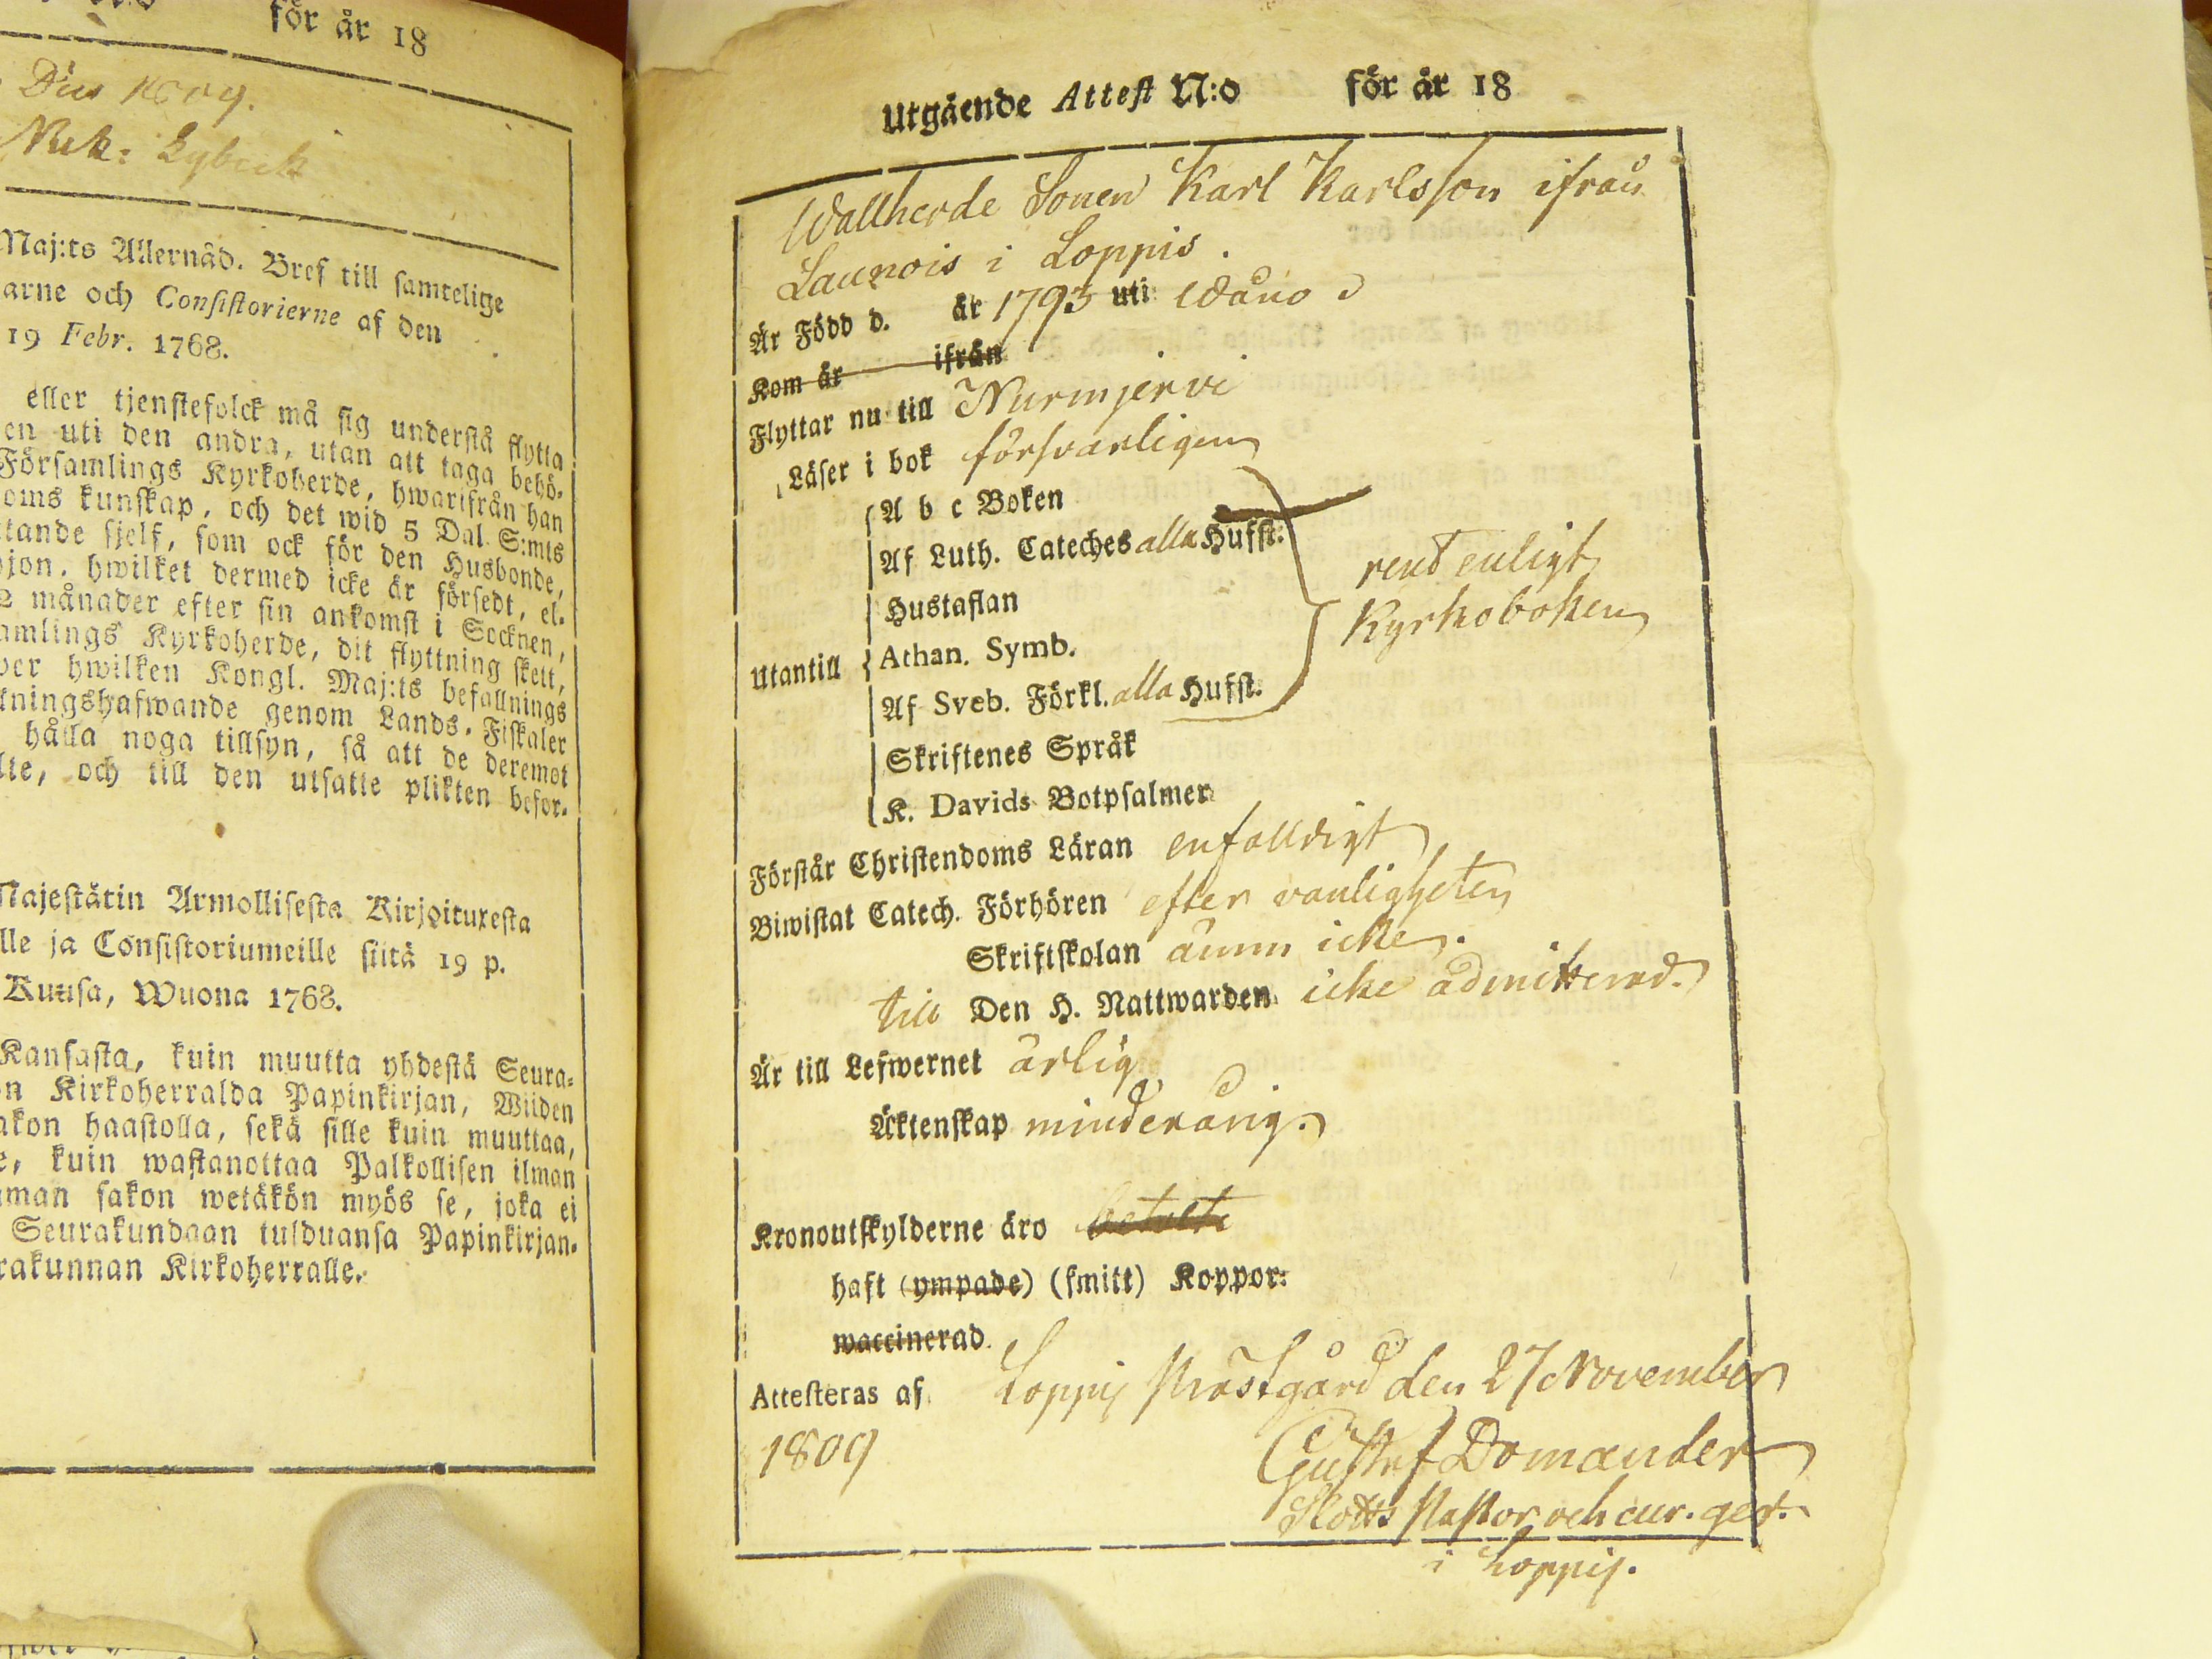 för år 18
Nick: Lybeck
Maj:ts Allernåd. Bref till samtelige
arne och Consistorierne af den
19 Febr. 1768.
eller tjenstefolck må sig understå flytta
en uti den andra, utan att taga behö-
Församlings Kyrkoherde, hwarifrån han
oms kunskap, och det wid 5 Dal. S:mts
tande sjelf, som ock för den Husbonde,
jon, hwilket dermed icke är försedt, el-
2 månader efter sin ankomst i Socknen,
amlings Kyrkoherde, dit flyttning skett,
wer hwilken Kongl. Maj:ts befallnings
kningshafwande genom Lands-Fiskaler
hålla noga tillsyn, så att de deremot
lte, och till den utsatte plikten befor-
Majestätin Armollisesta Kirjoituxesta
lle ja Consistoriumeille siitä 19 p.
Kuusa, Wuona 1768.
Kansasta, kuin muutta yhdestä Seura-
n Kirkoherralda Papinkirjan, Wiiden
akon haastolla, sekä sille kuin muuttaa,
e, kuin wastanottaa Palkollisen ilman
man sakon wetäkön myös se, joka ei
Seurakundaan tulduansa Papinkirjan-
rakunnan Kirkoherralle.
Utgående Attest N:o för år 18
Wallherde Sonen Karl Karlsson ifrån
Launois i Loppis.
Är Född d. år 1793 uti Wåno
Kom år ifrån
Flyttar nu till Nurmjervi
Läser i bok försvarligen
A b c Boken
Af Luth. Cateches alla Hufst:
Hustaflan
rent enligt
Kyrkoboken
Utantill Athan. Symb.
Af Sveb. Förkl. alla Hufst.
Skriftenes Språk
K. Davids Botpsalmer
Förstår Christendoms Läran enfalldigt
Biwistat Catech. Förhören efter vanligheten
Skriftskolan ännu icke.
till Den H. Nattwarden icke admitterad.
Är till Lefwernet ärlig
Äktenskap minderårig.
Kronoutskylderne äro betalte
haft (ympade) (smitt) Koppor:
waccinerad.
Attesteras af Loppis Prostgård den 27 November
1809 Gustaf Domander
Slotts Pastor och cur. gert.
i Loppis.